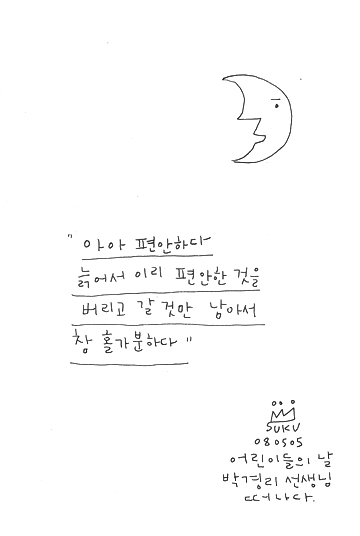 " 아아 편안하다
늙어서 이리 편안한 것을
버리고 갈 것만 남아서
참 홀가분하다 "
SUKU
080505
어린이들의 날
박경리 선생님
떠나다.